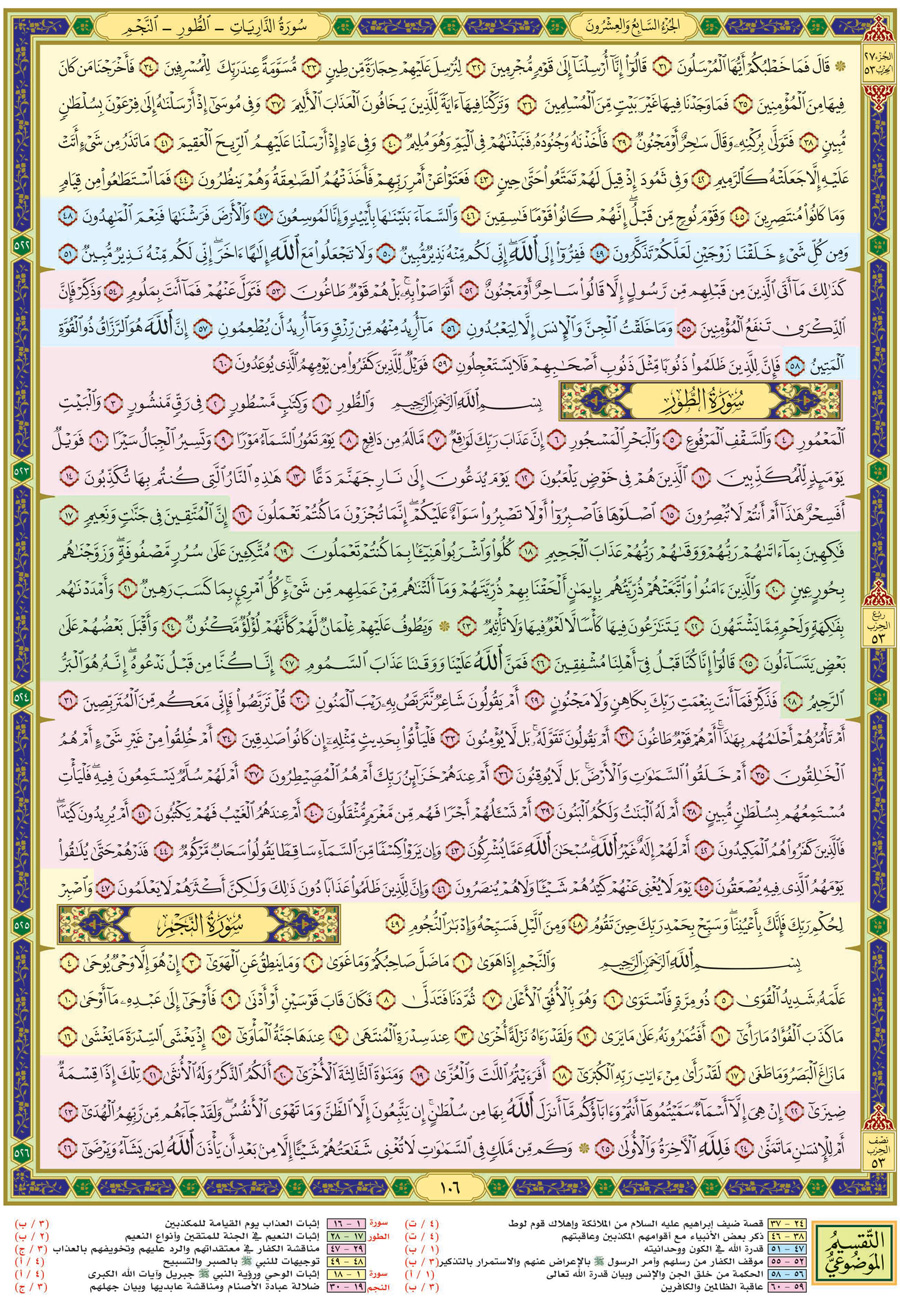 الجُزْءُ السَّابِعُ وَالعِشْرُونَ
سُورَةُ الذَّارِيَاتِ - الطُّورِ - النَّجْمِ
الجُزْء ٢٧
الحِزْب ٥٣
۞ قَالَ فَمَا خَطْبُكُمْ أَيُّهَا ٱلْمُرْسَلُونَ ٣١ قَالُوٓا۟ إِنَّآ أُرْسِلْنَآ إِلَىٰ قَوْمٍ مُّجْرِمِينَ ٣٢ لِنُرْسِلَ عَلَيْهِمْ حِجَارَةً مِّن طِينٍ ٣٣ مُّسَوَّمَةً عِندَ رَبِّكَ لِلْمُسْرِفِينَ ٣٤ فَأَخْرَجْنَا مَن كَانَ
فِيهَا مِنَ ٱلْمُؤْمِنِينَ ٣٥ فَمَا وَجَدْنَا فِيهَا غَيْرَ بَيْتٍ مِّنَ ٱلْمُسْلِمِينَ ٣٦ وَتَرَكْنَا فِيهَآ ءَايَةً لِّلَّذِينَ يَخَافُونَ ٱلْعَذَابَ ٱلْأَلِيمَ ٣٧ وَفِى مُوسَىٰٓ إِذْ أَرْسَلْنَٰهُ إِلَىٰ فِرْعَوْنَ بِسُلْطَٰنٍ
مُّبِينٍ ٣٨ فَتَوَلَّىٰ بِرُكْنِهِۦ وَقَالَ سَٰحِرٌ أَوْ مَجْنُونٌ ٣٩ فَأَخَذْنَٰهُ وَجُنُودَهُۥ فَنَبَذْنَٰهُمْ فِى ٱلْيَمِّ وَهُوَ مُلِيمٌ ٤٠ وَفِى عَادٍ إِذْ أَرْسَلْنَا عَلَيْهِمُ ٱلرِّيحَ ٱلْعَقِيمَ ٤١ مَا تَذَرُ مِن شَىْءٍ أَتَتْ
عَلَيْهِ إِلَّا جَعَلَتْهُ كَٱلرَّمِيمِ ٤٢ وَفِى ثَمُودَ إِذْ قِيلَ لَهُمْ تَمَتَّعُوا۟ حَتَّىٰ حِينٍ ٤٣ فَعَتَوْا۟ عَنْ أَمْرِ رَبِّهِمْ فَأَخَذَتْهُمُ ٱلصَّٰعِقَةُ وَهُمْ يَنظُرُونَ ٤٤ فَمَا ٱسْتَطَٰعُوا۟ مِن قِيَامٍ
وَمَا كَانُوا۟ مُنتَصِرِينَ ٤٥ وَقَوْمَ نُوحٍ مِّن قَبْلُ ۖ إِنَّهُمْ كَانُوا۟ قَوْمًا فَٰسِقِينَ ٤٦ وَٱلسَّمَآءَ بَنَيْنَٰهَا بِأَيْي۟دٍ وَإِنَّا لَمُوسِعُونَ ٤٧ وَٱلْأَرْضَ فَرَشْنَٰهَا فَنِعْمَ ٱلْمَٰهِدُونَ ٤٨
٥٢٢
وَمِن كُلِّ شَىْءٍ خَلَقْنَا زَوْجَيْنِ لَعَلَّكُمْ تَذَكَّرُونَ ٤٩ فَفِرُّوٓا۟ إِلَى ٱللَّهِ ۖ إِنِّى لَكُم مِّنْهُ نَذِيرٌ مُّبِينٌ ٥٠ وَلَا تَجْعَلُوا۟ مَعَ ٱللَّهِ إِلَٰهًا ءَاخَرَ ۖ إِنِّى لَكُم مِّنْهُ نَذِيرٌ مُّبِينٌ ٥١
كَذَٰلِكَ مَآ أَتَى ٱلَّذِينَ مِن قَبْلِهِم مِّن رَّسُولٍ إِلَّا قَالُوا۟ سَاحِرٌ أَوْ مَجْنُونٌ ٥٢ أَتَوَاصَوْا۟ بِهِۦ ۚ بَلْ هُمْ قَوْمٌ طَاغُونَ ٥٣ فَتَوَلَّ عَنْهُمْ فَمَآ أَنتَ بِمَلُومٍ ٥٤ وَذَكِّرْ فَإِنَّ
ٱلذِّكْرَىٰ تَنفَعُ ٱلْمُؤْمِنِينَ ٥٥ وَمَا خَلَقْتُ ٱلْجِنَّ وَٱلْإِنسَ إِلَّا لِيَعْبُدُونِ ٥٦ مَآ أُرِيدُ مِنْهُم مِّن رِّزْقٍ وَمَآ أُرِيدُ أَن يُطْعِمُونِ ٥٧ إِنَّ ٱللَّهَ هُوَ ٱلرَّزَّاقُ ذُو ٱلْقُوَّةِ
ٱلْمَتِينُ ٥٨ فَإِنَّ لِلَّذِينَ ظَلَمُوا۟ ذَنُوبًا مِّثْلَ ذَنُوبِ أَصْحَٰبِهِمْ فَلَا يَسْتَعْجِلُونِ ٥٩ فَوَيْلٌ لِّلَّذِينَ كَفَرُوا۟ مِن يَوْمِهِمُ ٱلَّذِى يُوعَدُونَ ٦٠
سُورَةُ الطُّورِ
بِسْمِ ٱللَّهِ ٱلرَّحْمَٰنِ ٱلرَّحِيمِ وَٱلطُّورِ ١ وَكِتَٰبٍ مَّسْطُورٍ ٢ فِى رَقٍّ مَّنشُورٍ ٣ وَٱلْبَيْتِ
ٱلْمَعْمُورِ ٤ وَٱلسَّقْفِ ٱلْمَرْفُوعِ ٥ وَٱلْبَحْرِ ٱلْمَسْجُورِ ٦ إِنَّ عَذَابَ رَبِّكَ لَوَٰقِعٌ ٧ مَّا لَهُۥ مِن دَافِعٍ ٨ يَوْمَ تَمُورُ ٱلسَّمَآءُ مَوْرًا ٩ وَتَسِيرُ ٱلْجِبَالُ سَيْرًا ١٠ فَوَيْلٌ
٥٢٣
يَوْمَئِذٍ لِّلْمُكَذِّبِينَ ١١ ٱلَّذِينَ هُمْ فِى خَوْضٍ يَلْعَبُونَ ١٢ يَوْمَ يُدَعُّونَ إِلَىٰ نَارِ جَهَنَّمَ دَعًّا ١٣ هَٰذِهِ ٱلنَّارُ ٱلَّتِى كُنتُم بِهَا تُكَذِّبُونَ ١٤
أَفَسِحْرٌ هَٰذَآ أَمْ أَنتُمْ لَا تُبْصِرُونَ ١٥ ٱصْلَوْهَا فَٱصْبِرُوٓا۟ أَوْ لَا تَصْبِرُوا۟ سَوَآءٌ عَلَيْكُمْ ۖ إِنَّمَا تُجْزَوْنَ مَا كُنتُمْ تَعْمَلُونَ ١٦ إِنَّ ٱلْمُتَّقِينَ فِى جَنَّٰتٍ وَنَعِيمٍ ١٧
فَٰكِهِينَ بِمَآ ءَاتَىٰهُمْ رَبُّهُمْ وَوَقَىٰهُمْ رَبُّهُمْ عَذَابَ ٱلْجَحِيمِ ١٨ كُلُوا۟ وَٱشْرَبُوا۟ هَنِيٓـًٔۢا بِمَا كُنتُمْ تَعْمَلُونَ ١٩ مُتَّكِـِٔينَ عَلَىٰ سُرُرٍ مَّصْفُوفَةٍ ۖ وَزَوَّجْنَٰهُم
بِحُورٍ عِينٍ ٢٠ وَٱلَّذِينَ ءَامَنُوا۟ وَٱتَّبَعَتْهُمْ ذُرِّيَّتُهُم بِإِيمَٰنٍ أَلْحَقْنَا بِهِمْ ذُرِّيَّتَهُمْ وَمَآ أَلَتْنَٰهُم مِّنْ عَمَلِهِم مِّن شَىْءٍ ۚ كُلُّ ٱمْرِئٍۭ بِمَا كَسَبَ رَهِينٌ ٢١ وَأَمْدَدْنَٰهُم
رُبع الحِزب ٥٣
بِفَٰكِهَةٍ وَلَحْمٍ مِّمَّا يَشْتَهُونَ ٢٢ يَتَنَٰزَعُونَ فِيهَا كَأْسًا لَّا لَغْوٌ فِيهَا وَلَا تَأْثِيمٌ ٢٣ ۞ وَيَطُوفُ عَلَيْهِمْ غِلْمَانٌ لَّهُمْ كَأَنَّهُمْ لُؤْلُؤٌ مَّكْنُونٌ ٢٤ وَأَقْبَلَ بَعْضُهُمْ عَلَىٰ
بَعْضٍ يَتَسَآءَلُونَ ٢٥ قَالُوٓا۟ إِنَّا كُنَّا قَبْلُ فِىٓ أَهْلِنَا مُشْفِقِينَ ٢٦ فَمَنَّ ٱللَّهُ عَلَيْنَا وَوَقَىٰنَا عَذَابَ ٱلسَّمُومِ ٢٧ إِنَّا كُنَّا مِن قَبْلُ نَدْعُوهُ ۖ إِنَّهُۥ هُوَ ٱلْبَرُّ
٥٢٤
ٱلرَّحِيمُ ٢٨ فَذَكِّرْ فَمَآ أَنتَ بِنِعْمَتِ رَبِّكَ بِكَاهِنٍ وَلَا مَجْنُونٍ ٢٩ أَمْ يَقُولُونَ شَاعِرٌ نَّتَرَبَّصُ بِهِۦ رَيْبَ ٱلْمَنُونِ ٣٠ قُلْ تَرَبَّصُوا۟ فَإِنِّى مَعَكُم مِّنَ ٱلْمُتَرَبِّصِينَ ٣١
أَمْ تَأْمُرُهُمْ أَحْلَٰمُهُم بِهَٰذَآ ۚ أَمْ هُمْ قَوْمٌ طَاغُونَ ٣٢ أَمْ يَقُولُونَ تَقَوَّلَهُۥ ۚ بَل لَّا يُؤْمِنُونَ ٣٣ فَلْيَأْتُوا۟ بِحَدِيثٍ مِّثْلِهِۦٓ إِن كَانُوا۟ صَٰدِقِينَ ٣٤ أَمْ خُلِقُوا۟ مِنْ غَيْرِ شَىْءٍ أَمْ هُمُ
ٱلْخَٰلِقُونَ ٣٥ أَمْ خَلَقُوا۟ ٱلسَّمَٰوَٰتِ وَٱلْأَرْضَ ۚ بَل لَّا يُوقِنُونَ ٣٦ أَمْ عِندَهُمْ خَزَآئِنُ رَبِّكَ أَمْ هُمُ ٱلْمُصَۣيْطِرُونَ ٣٧ أَمْ لَهُمْ سُلَّمٌ يَسْتَمِعُونَ فِيهِ ۖ فَلْيَأْتِ
مُسْتَمِعُهُم بِسُلْطَٰنٍ مُّبِينٍ ٣٨ أَمْ لَهُ ٱلْبَنَٰتُ وَلَكُمُ ٱلْبَنُونَ ٣٩ أَمْ تَسْـَٔلُهُمْ أَجْرًا فَهُم مِّن مَّغْرَمٍ مُّثْقَلُونَ ٤٠ أَمْ عِندَهُمُ ٱلْغَيْبُ فَهُمْ يَكْتُبُونَ ٤١ أَمْ يُرِيدُونَ كَيْدًا ۖ
فَٱلَّذِينَ كَفَرُوا۟ هُمُ ٱلْمَكِيدُونَ ٤٢ أَمْ لَهُمْ إِلَٰهٌ غَيْرُ ٱللَّهِ ۚ سُبْحَٰنَ ٱللَّهِ عَمَّا يُشْرِكُونَ ٤٣ وَإِن يَرَوْا۟ كِسْفًا مِّنَ ٱلسَّمَآءِ سَاقِطًا يَقُولُوا۟ سَحَابٌ مَّرْكُومٌ ٤٤ فَذَرْهُمْ حَتَّىٰ يُلَٰقُوا۟
يَوْمَهُمُ ٱلَّذِى فِيهِ يُصْعَقُونَ ٤٥ يَوْمَ لَا يُغْنِى عَنْهُمْ كَيْدُهُمْ شَيْـًٔا وَلَا هُمْ يُنصَرُونَ ٤٦ وَإِنَّ لِلَّذِينَ ظَلَمُوا۟ عَذَابًا دُونَ ذَٰلِكَ وَلَٰكِنَّ أَكْثَرَهُمْ لَا يَعْلَمُونَ ٤٧ وَٱصْبِرْ
٥٢٥
لِحُكْمِ رَبِّكَ فَإِنَّكَ بِأَعْيُنِنَا ۖ وَسَبِّحْ بِحَمْدِ رَبِّكَ حِينَ تَقُومُ ٤٨ وَمِنَ ٱلَّيْلِ فَسَبِّحْهُ وَإِدْبَٰرَ ٱلنُّجُومِ ٤٩
سُورَةُ النَّجْمِ
بِسْمِ ٱللَّهِ ٱلرَّحْمَٰنِ ٱلرَّحِيمِ وَٱلنَّجْمِ إِذَا هَوَىٰ ١ مَا ضَلَّ صَاحِبُكُمْ وَمَا غَوَىٰ ٢ وَمَا يَنطِقُ عَنِ ٱلْهَوَىٰٓ ٣ إِنْ هُوَ إِلَّا وَحْىٌ يُوحَىٰ ٤
عَلَّمَهُۥ شَدِيدُ ٱلْقُوَىٰ ٥ ذُو مِرَّةٍ فَٱسْتَوَىٰ ٦ وَهُوَ بِٱلْأُفُقِ ٱلْأَعْلَىٰ ٧ ثُمَّ دَنَا فَتَدَلَّىٰ ٨ فَكَانَ قَابَ قَوْسَيْنِ أَوْ أَدْنَىٰ ٩ فَأَوْحَىٰٓ إِلَىٰ عَبْدِهِۦ مَآ أَوْحَىٰ ١٠
مَا كَذَبَ ٱلْفُؤَادُ مَا رَأَىٰٓ ١١ أَفَتُمَٰرُونَهُۥ عَلَىٰ مَا يَرَىٰ ١٢ وَلَقَدْ رَءَاهُ نَزْلَةً أُخْرَىٰ ١٣ عِندَ سِدْرَةِ ٱلْمُنتَهَىٰ ١٤ عِندَهَا جَنَّةُ ٱلْمَأْوَىٰٓ ١٥ إِذْ يَغْشَى ٱلسِّدْرَةَ مَا يَغْشَىٰ ١٦
مَا زَاغَ ٱلْبَصَرُ وَمَا طَغَىٰ ١٧ لَقَدْ رَأَىٰ مِنْ ءَايَٰتِ رَبِّهِ ٱلْكُبْرَىٰٓ ١٨ أَفَرَءَيْتُمُ ٱللَّٰتَ وَٱلْعُزَّىٰ ١٩ وَمَنَوٰةَ ٱلثَّالِثَةَ ٱلْأُخْرَىٰٓ ٢٠ أَلَكُمُ ٱلذَّكَرُ وَلَهُ ٱلْأُنثَىٰ ٢١ تِلْكَ إِذًا قِسْمَةٌ
ضِيزَىٰٓ ٢٢ إِنْ هِىَ إِلَّآ أَسْمَآءٌ سَمَّيْتُمُوهَآ أَنتُمْ وَءَابَآؤُكُم مَّآ أَنزَلَ ٱللَّهُ بِهَا مِن سُلْطَٰنٍ ۚ إِن يَتَّبِعُونَ إِلَّا ٱلظَّنَّ وَمَا تَهْوَى ٱلْأَنفُسُ ۖ وَلَقَدْ جَآءَهُم مِّن رَّبِّهِمُ ٱلْهُدَىٰٓ ٢٣
نِصْف الحِزب ٥٣
٥٢٦
أَمْ لِلْإِنسَٰنِ مَا تَمَنَّىٰ ٢٤ فَلِلَّهِ ٱلْءَاخِرَةُ وَٱلْأُولَىٰ ٢٥ ۞ وَكَم مِّن مَّلَكٍ فِى ٱلسَّمَٰوَٰتِ لَا تُغْنِى شَفَٰعَتُهُمْ شَيْـًٔا إِلَّا مِنۢ بَعْدِ أَن يَأْذَنَ ٱللَّهُ لِمَن يَشَآءُ وَيَرْضَىٰٓ ٢٦
١٠٦
التَّقْسِيمُ المَوْضُوعِيُّ
٢٤ - ٣٧ قصة ضيف إبراهيم عليه السلام من الملائكة وإهلاك قوم لوط (٤ / ت)
٣٨ - ٤٦ ذكر بعض الأنبياء مع أقوامهم المكذبين وعاقبتهم (٤ / ت)
٤٧ - ٥١ قدرة الله في الكون ووحدانيته (١ / ب)
٥٢ - ٥٥ موقف الكفار من رسلهم وأمر الرسول ﷺ بالإعراض عنهم والاستمرار بالتذكير (٣ / ب)
٥٦ - ٥٨ الحكمة من خلق الجن والإنس وبيان قدرة الله تعالى (١ / أ)
٥٩ - ٦٠ عاقبة الظالمين والكافرين (٣ / ب)
سورة الطور
١ - ١٦ إثبات العذاب يوم القيامة للمكذبين (٣ / ب)
١٧ - ٢٨ إثبات النعيم في الجنة للمتقين وأنواع النعيم (٢ / ب)
٢٩ - ٤٧ مناقشة الكفار في معتقداتهم والرد عليهم وتخويفهم بالعذاب (٣ / ج)
٤٨ - ٤٩ توجيهات للنبي ﷺ بالصبر والتسبيح (٤ / أ)
سورة النجم
١ - ١٨ إثبات الوحي ورؤية النبي ﷺ جبريل وآيات الله الكبرى (٤ / أ)
١٩ - ٣٠ ضلالة عبادة الأصنام ومناقشة عابديها وبيان جهلهم (٣ / ج)